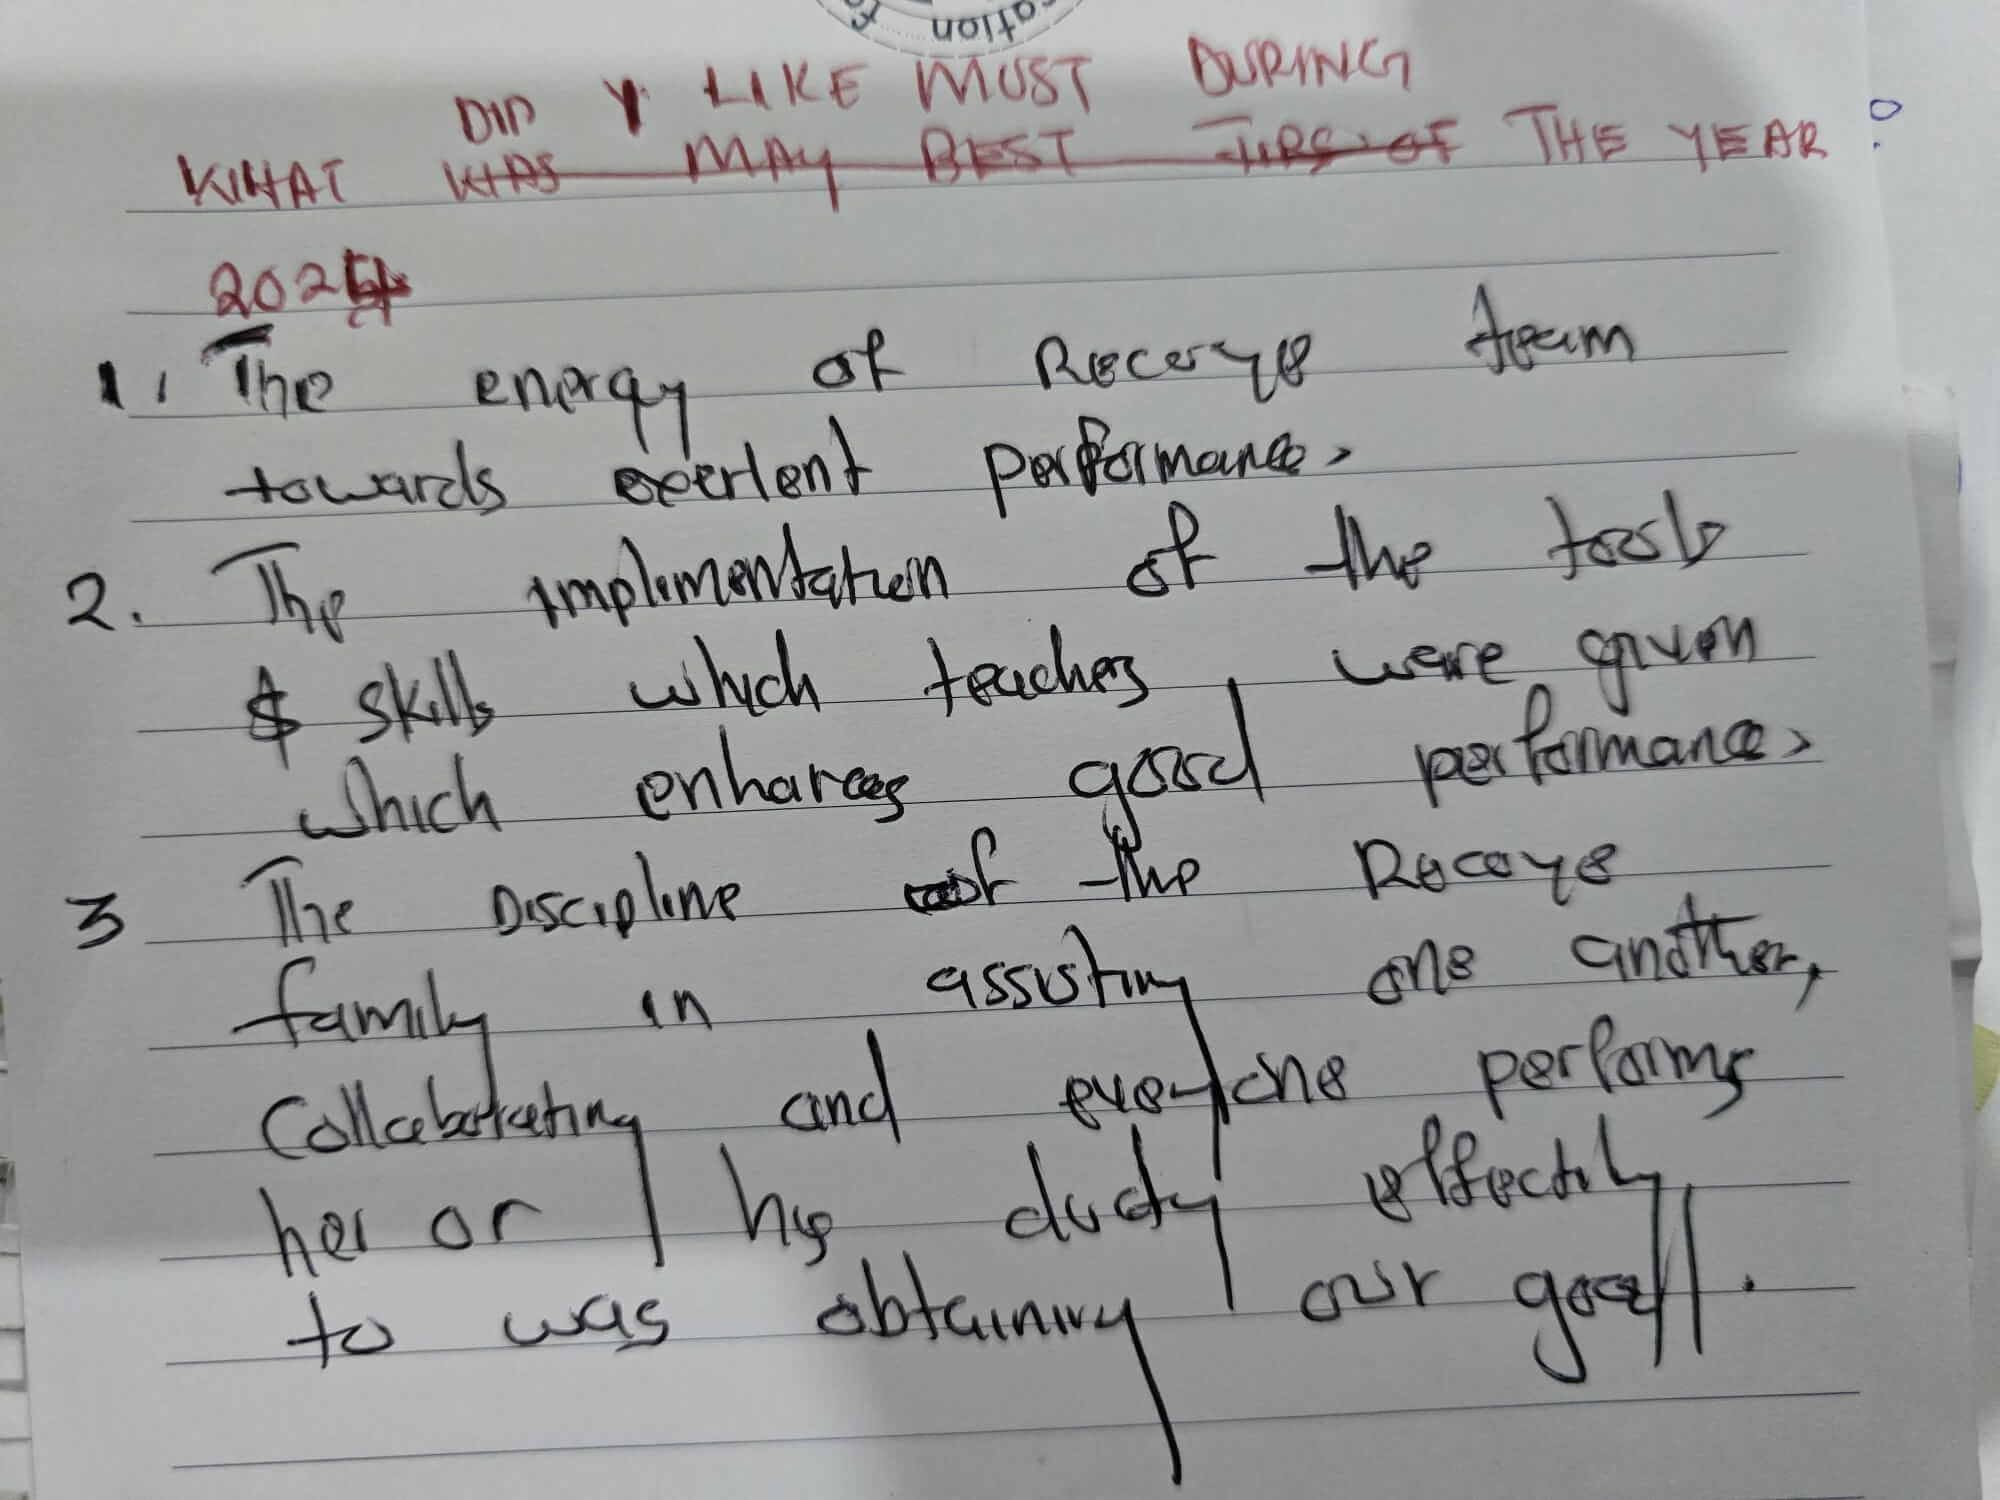 cation
DID Y LIKE MUST DURING
WHAT WAS MAY BEST OF THE YEAR ?
202
1. The energy of Receye team
towards exerlent performance.
2. The implimentation of the tools
$ skills which teachers were given
which enhances good performance.
3 The Discipline of the Receye
family in assisting one another,
Collaborating and everyone performs
her or his duty effectily
to was obtaining our goal.